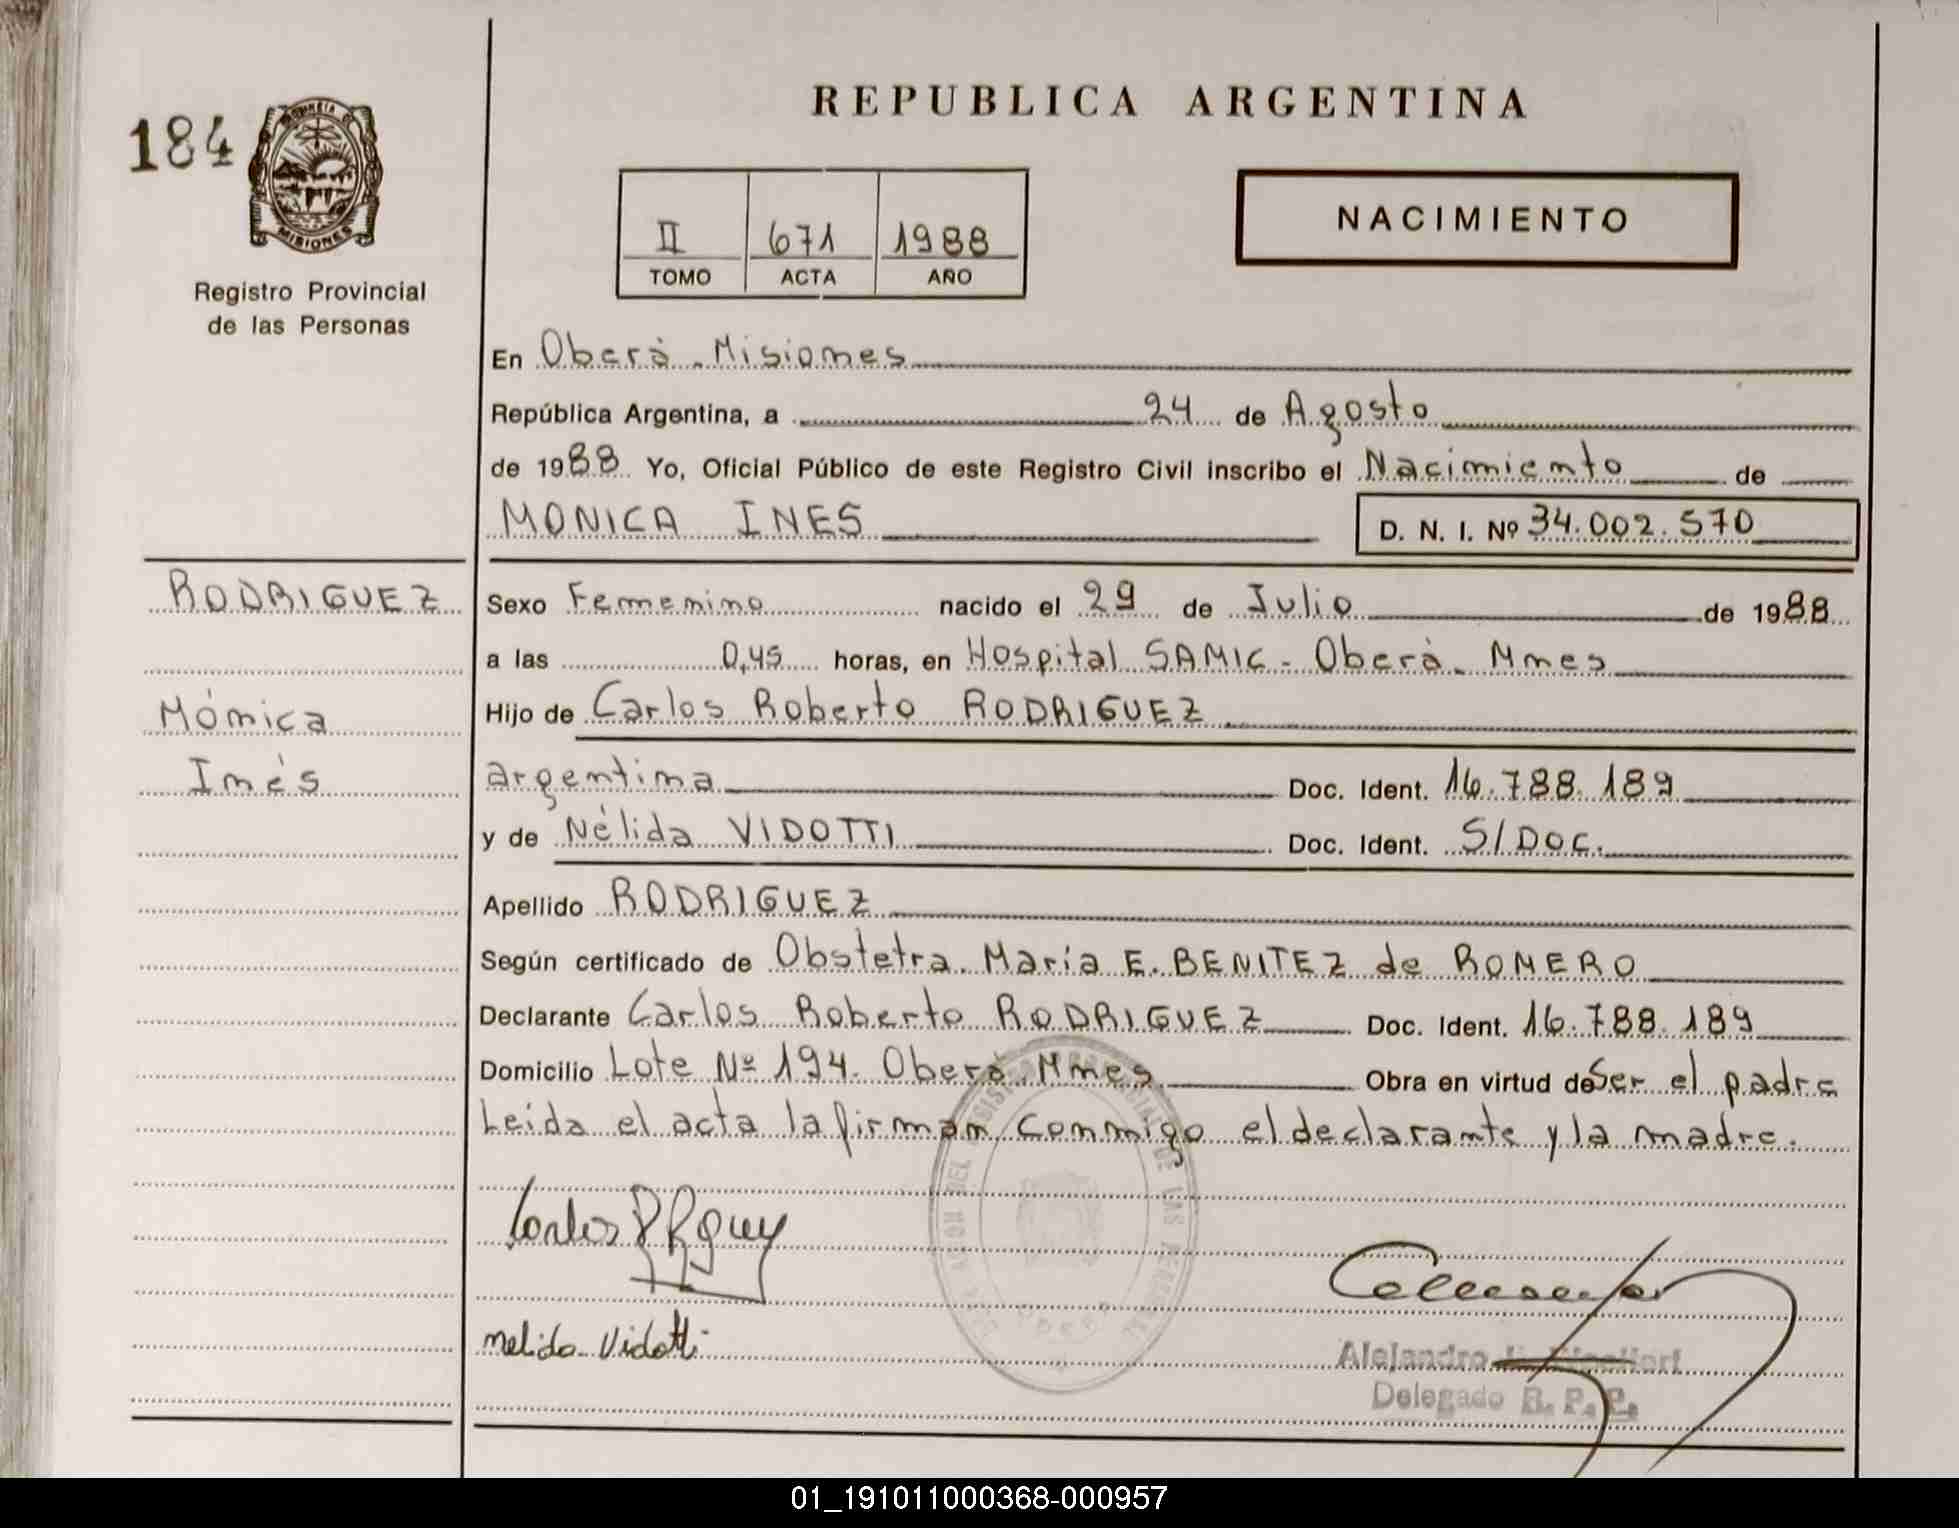 REPUBLICA ARGENTINA
184
MISIONES
Registro Provincial
de las Personas
II 671 1988
TOMO ACTA AÑO
NACIMIENTO
En Oberà - Misiones
República Argentina, a 24 de Agosto
de 1988 Yo, Oficial Público de este Registro Civil inscribo el Nacimiento de
MONICA INES D. N. I. Nº 34.002.570
RODRIGUEZ
Mónica
Inés
Sexo Femenino nacido el 29 de Julio de 1988
a las 0,45 horas, en Hospital SAMIC - Oberà - Mnes
Hijo de Carlos Roberto RODRIGUEZ
argentina Doc. Ident. 16.788.189
y de Nélida VIDOTTI Doc. Ident. S/DOC.
Apellido RODRIGUEZ
Según certificado de Obstetra. María E. BENITEZ de ROMERO
Declarante Carlos Roberto RODRIGUEZ Doc. Ident. 16.788.189
Domicilio Lote Nº 194. Oberà Mnes Obra en virtud de Ser el padre
Leída el acta la firman conmigo el declarante y la madre.
Carlos R
Nelida Vidotti
Alejandro
Delegado R. P. P.
01_191011000368-000957